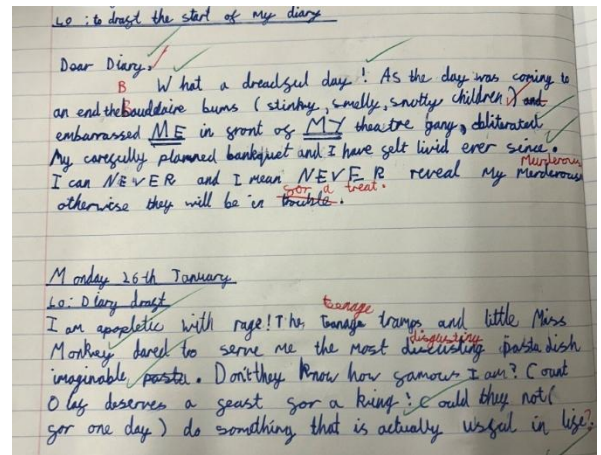 LO: to draft the start of my diary
Dear Diary,
B
What a dreadful day! As the day was coming to
an end the bauddaire bums (stinky, smelly, snotty children) and
embarrassed ME in front of MY theatre gang, obliterated
My carefully planned bankquet and I have felt livid ever since.
Murderous
I can NEVER and I mean NEVER reveal my Merderous
for a treat.
otherwise they will be in trouble.
Monday 26th January
LO: Diary draft
teenage
I am apopletic with rage! The tramps and little Miss
disgusting
Monkey dared to serve me the most discusting pasta dish
imaginable pasta. Don't they know how famous I am? Count
Olaf deserves a feast for a king! Could they not (
for one day) do something that is actually useful in life?